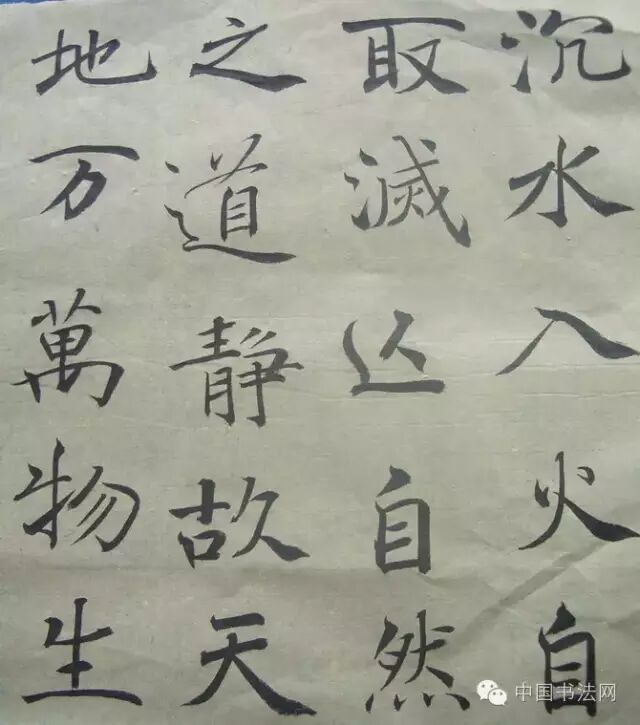 沉水入火自
取滅亾自然
之道静故天
地万萬物生
中国书法网